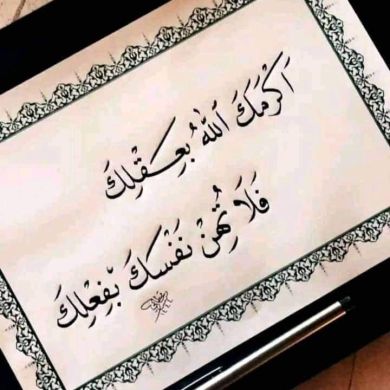 اَكْرَمَكَ اَللهُ بِعَقْلِكَ
فَلَا تُهِنْ نَفْسَكَ بِفِعْلِكَ